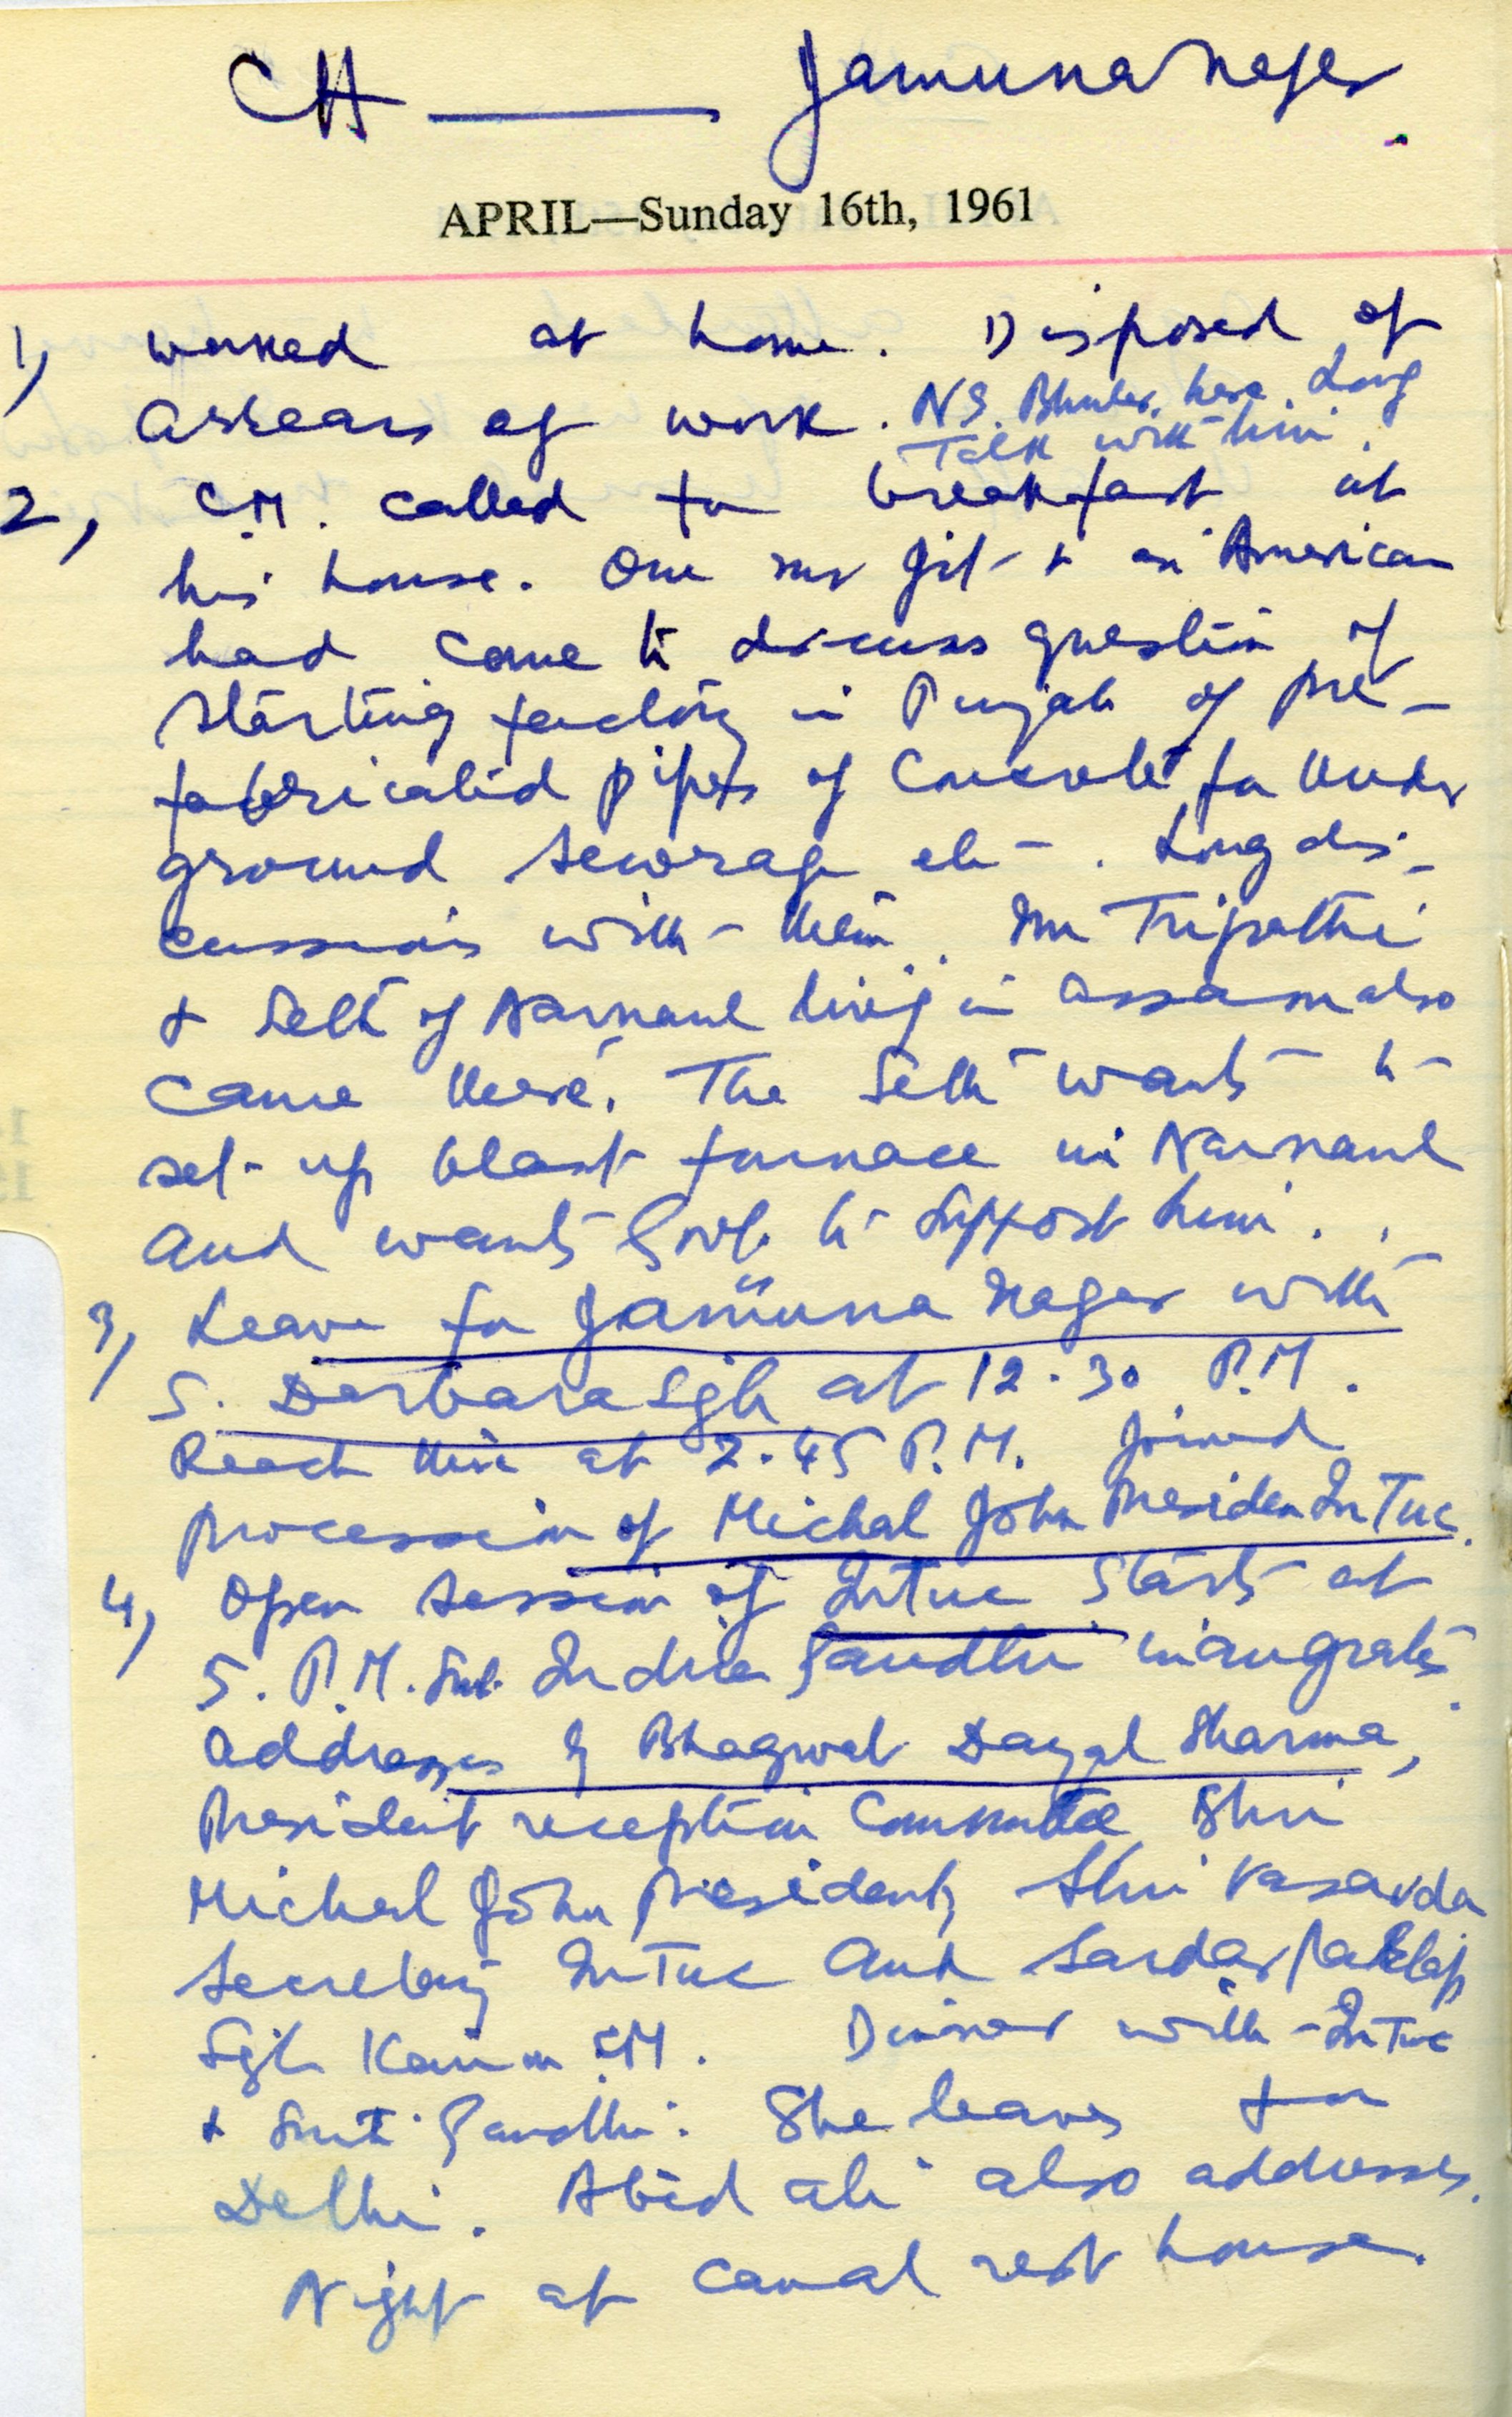 CH —— Jamuna Nagar
APRIL—Sunday 16th, 1961
1) Worked at home. Disposed of
arrears of work. N.S. Bhuler here. Long
Talk with him.
2, C.M. called for breakfast at
his house. One mr + an American
had come to discuss question of
starting factory in Punjab of pre-
fabricated pipes of Concrete for Under
ground sewerage etc. Long dis-
cussions with them. Mr Tripathi
& Seth of Narnaul living in Assam also
came there. The Seth wants to
set up blast furnace in Narnaul
and wants Govt. to support him.
3, Leave for Jamuna Nagar with
S. Darbara Sgh at 12.30 P.M.
Reach there at 2.45 P.M. Joined
procession of Michal John Presiden INTUC.
4, Open session of INTUC starts at
5. P.M. Smt. Indira Gandhi inaugrates.
Addresses by Bhagwat Dayal Sharma,
President reception Committee Shri
Michal John President, Shri Vasavda
Secretary INTUC and Sardar Partap
Sgh Kairon CM. Dinner with INTUC
& Smt. Gandhi. She leaves for
Delhi. Abid Ali also addresses.
Night at Canal rest house.